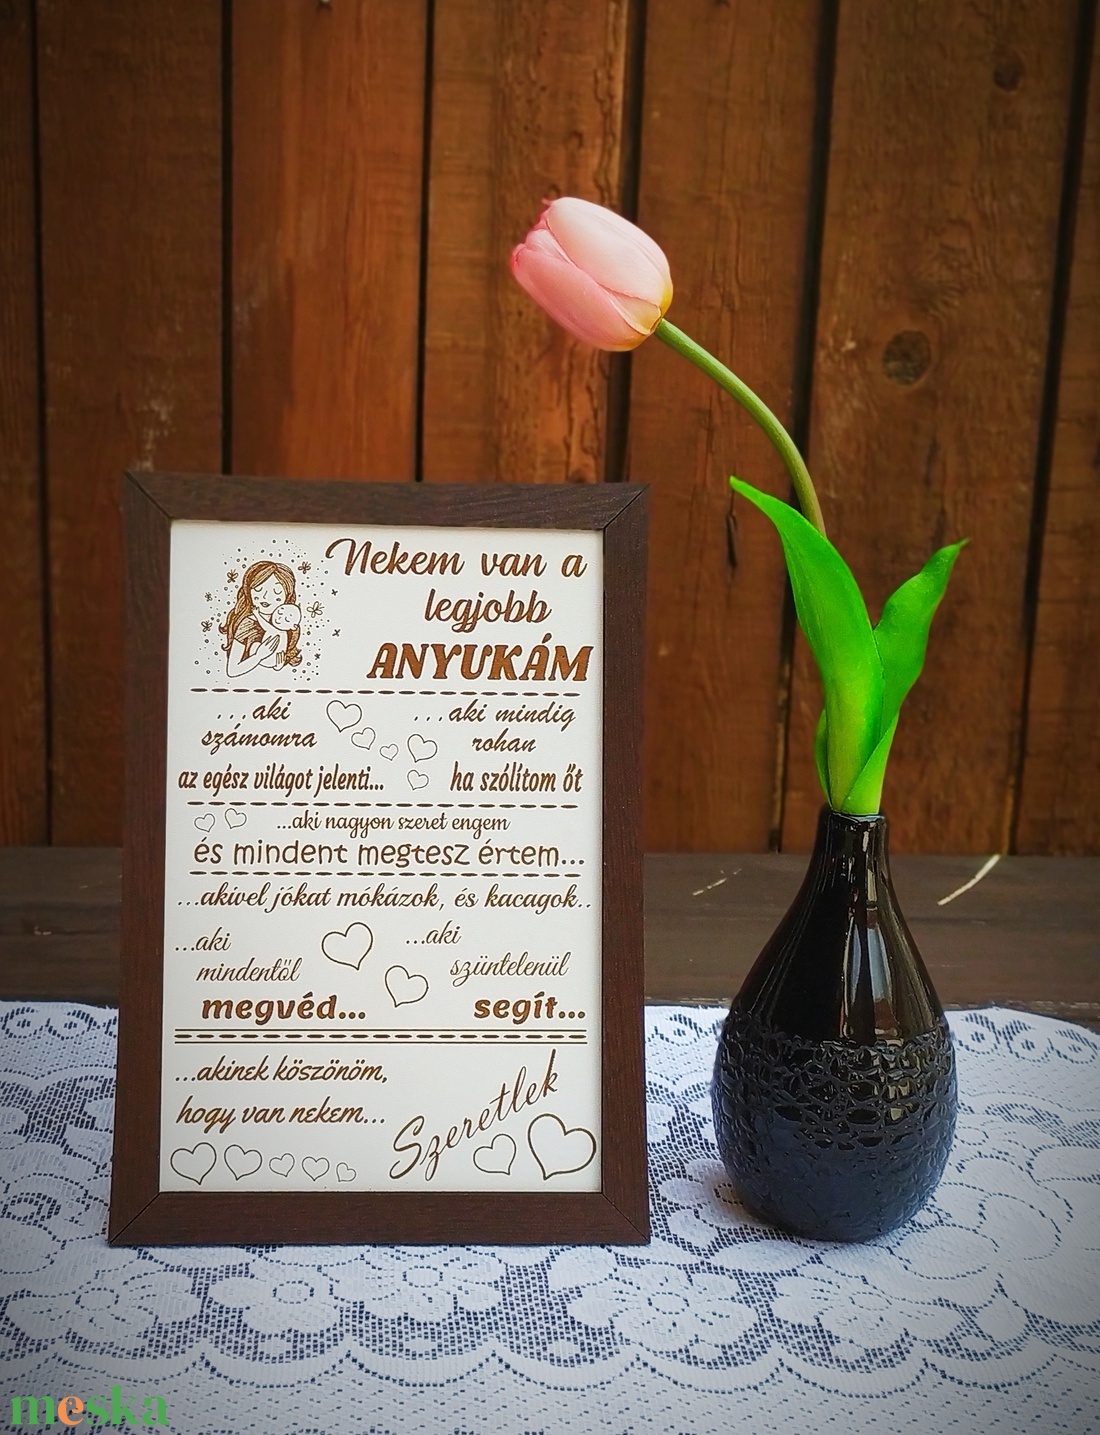 Nekem van a
legjobb
ANYUKÁM
...aki
számomra
az egész világot jelenti...
...aki mindig
rohan
ha szólítom őt
...aki nagyon szeret engem
és mindent megtesz értem...
...akivel jókat mókázok, és kacagok..
...aki
mindentől
megvéd...
...aki
szüntelenül
segít...
...akinek köszönöm,
hogy van nekem...
Szeretlek
meska